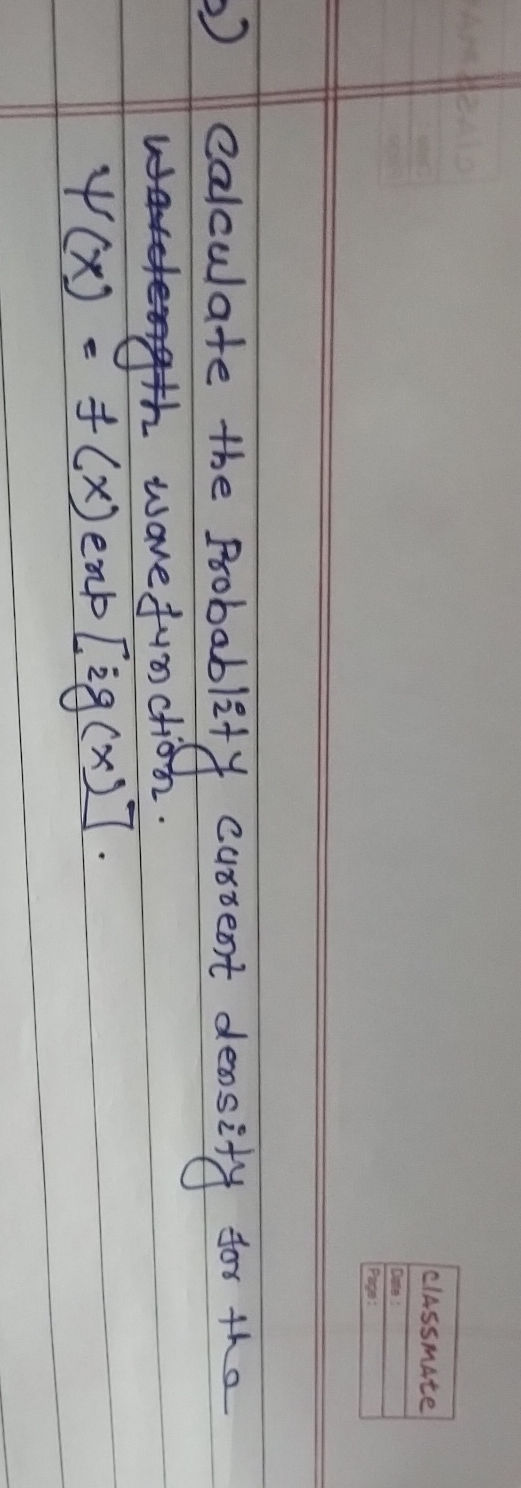 CLASSMATE
Date :
Page :
Calculate the Probablity current density for the
wavefunction.
Ψ(x) = f(x) exp [ig(x)].